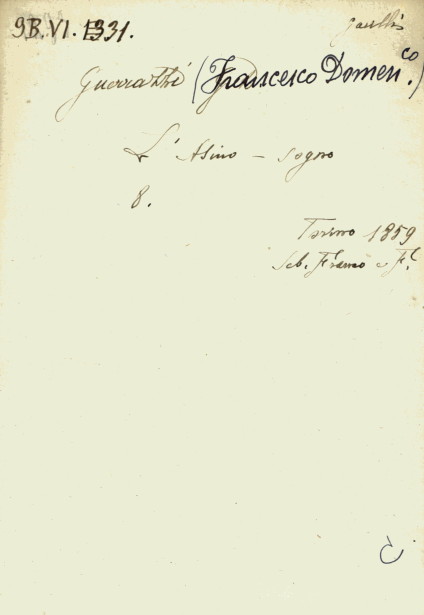 9B.VI.1331.
Guerrazzi (Francesco Domen.co)
L'Asino - sogno
8.
Torino 1859
Seb. Franco e F.